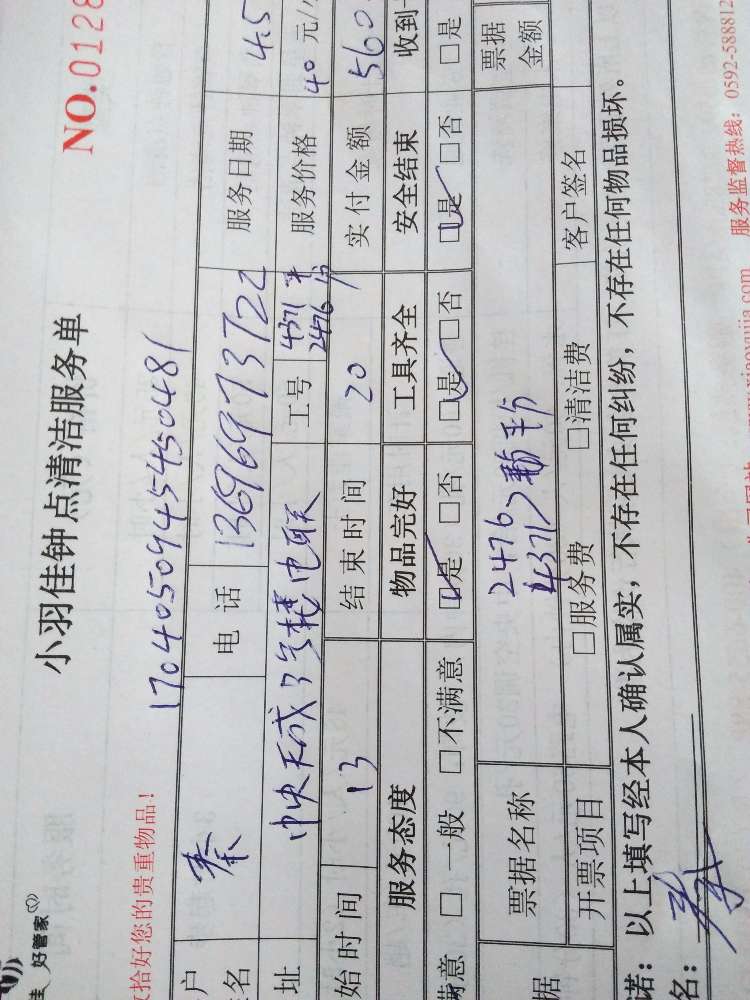 好管家
小羽佳钟点清洁服务单
NO.0128
收拾好您的贵重物品!
1704050945450481
户名 秦 电话 13696973722 服务日期 4.5
址 中央天成 电联 工号 4371 2476 服务价格 40元/
始时间 13 结束时间 20 实付金额 560
服务态度 物品完好 工具齐全 安全结束 收到
满意 □一般 □不满意 □是 □否 □是 □否 □是 □否 □是
据 票据名称 2476 4371 票据金额
开票项目 □服务费 □清洁费 客户签名
诺:以上填写经本人确认属实,不存在任何纠纷,不存在任何物品损坏。
名:
服务监督热线:0592-588812